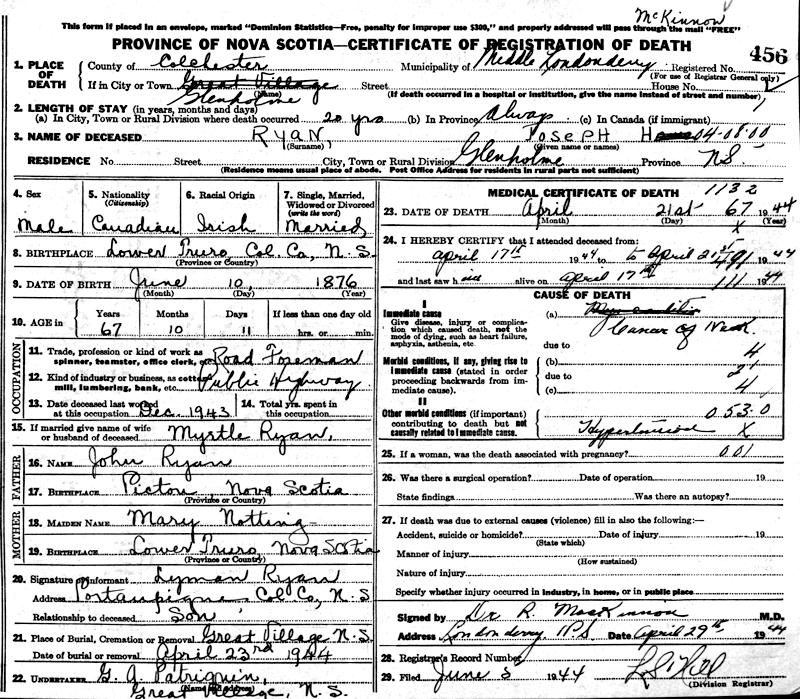 McKinnon
This form if placed in an envelope, marked "Dominion Statistics—Free, penalty for improper use $300," and properly addressed will pass through the mail "FREE"
PROVINCE OF NOVA SCOTIA—CERTIFICATE OF REGISTRATION OF DEATH
456
1. PLACE OF DEATH
County of Colchester Municipality of Middle Londonderry Registered No.
(For use of Registrar General only)
If in City or Town Great Village Street House No.
(Name) (If death occurred in a hospital or institution, give the name instead of street and number)
Glenholme
2. LENGTH OF STAY (in years, months and days)
(a) In City, Town or Rural Division where death occurred 20 yrs (b) In Province Always (c) In Canada (if immigrant)
3. NAME OF DECEASED RYAN JOSEPH H 04-08-00
(Surname) (Given name or names)
RESIDENCE No. Street City, Town or Rural Division Glenholme Province N.S.
(Residence means usual place of abode. Post Office Address for residents in rural parts not sufficient)
4. Sex 5. Nationality 6. Racial Origin 7. Single, Married, Widowed or Divorced
(Citizenship) (write the word)
Male Canadian Irish Married
8. BIRTHPLACE Lower Truro Col. Co, N. S.
(Province or Country)
9. DATE OF BIRTH June 10, 1876
(Month) (Day) (Year)
10. AGE in Years Months Days If less than one day old
67 10 11 hrs. or min.
OCCUPATION
11. Trade, profession or kind of work as spinner, teamster, office clerk, etc. Road Foreman
12. Kind of industry or business, as cotton mill, lumbering, bank, etc. Public Highway
13. Date deceased last worked at this occupation Dec. 1943 14. Total yrs. spent in this occupation
15. If married give name of wife or husband of deceased Myrtle Ryan,
FATHER
16. NAME John Ryan
17. BIRTHPLACE Pictou, Nova Scotia
(Province or Country)
MOTHER
18. MAIDEN NAME Mary Notting
19. BIRTHPLACE Lower Truro, Nova Scotia
(Province or Country)
20. Signature of informant Lyman Ryan
Address Portaupique Col Co, N. S
Relationship to deceased Son
21. Place of Burial, Cremation or Removal Great Village N. S.
Date of burial or removal April 23rd 1944
22. UNDERTAKER G. A. Patriquin,
(Name and Address)
Great Village, N. S.
MEDICAL CERTIFICATE OF DEATH 1132
23. DATE OF DEATH April 21st 67 1944
(Month) (Day) X (Year)
24. I HEREBY CERTIFY that I attended deceased from:
April 17th 1944 to April 21st 1944
491
and last saw h im alive on April 17th 1944
111
CAUSE OF DEATH
I
Immediate cause
Give disease, injury or complication which caused death, not the mode of dying, such as heart failure, asphyxia, asthenia, etc.
(a)
Cancer of Neck
due to 4
Morbid conditions, if any, giving rise to immediate cause (stated in order proceeding backwards from immediate cause).
(b)
due to
(c) 4
II
Other morbid conditions (if important) contributing to death but not causally related to immediate cause.
0 53.0
Hypertension X
25. If a woman, was the death associated with pregnancy? 001
26. Was there a surgical operation? Date of operation 19
State findings Was there an autopsy?
27. If death was due to external causes (violence) fill in also the following:—
Accident, suicide or homicide? Date of injury 19
(State which)
Manner of injury
(How sustained)
Nature of injury
Specify whether injury occurred in industry, in home, or in public place
Signed by Dr R. MacKinnon M.D.
Address Londonderry N S Date April 29th 1944
28. Registrar's Record Number
29. Filed June 5 1944
(Division Registrar)